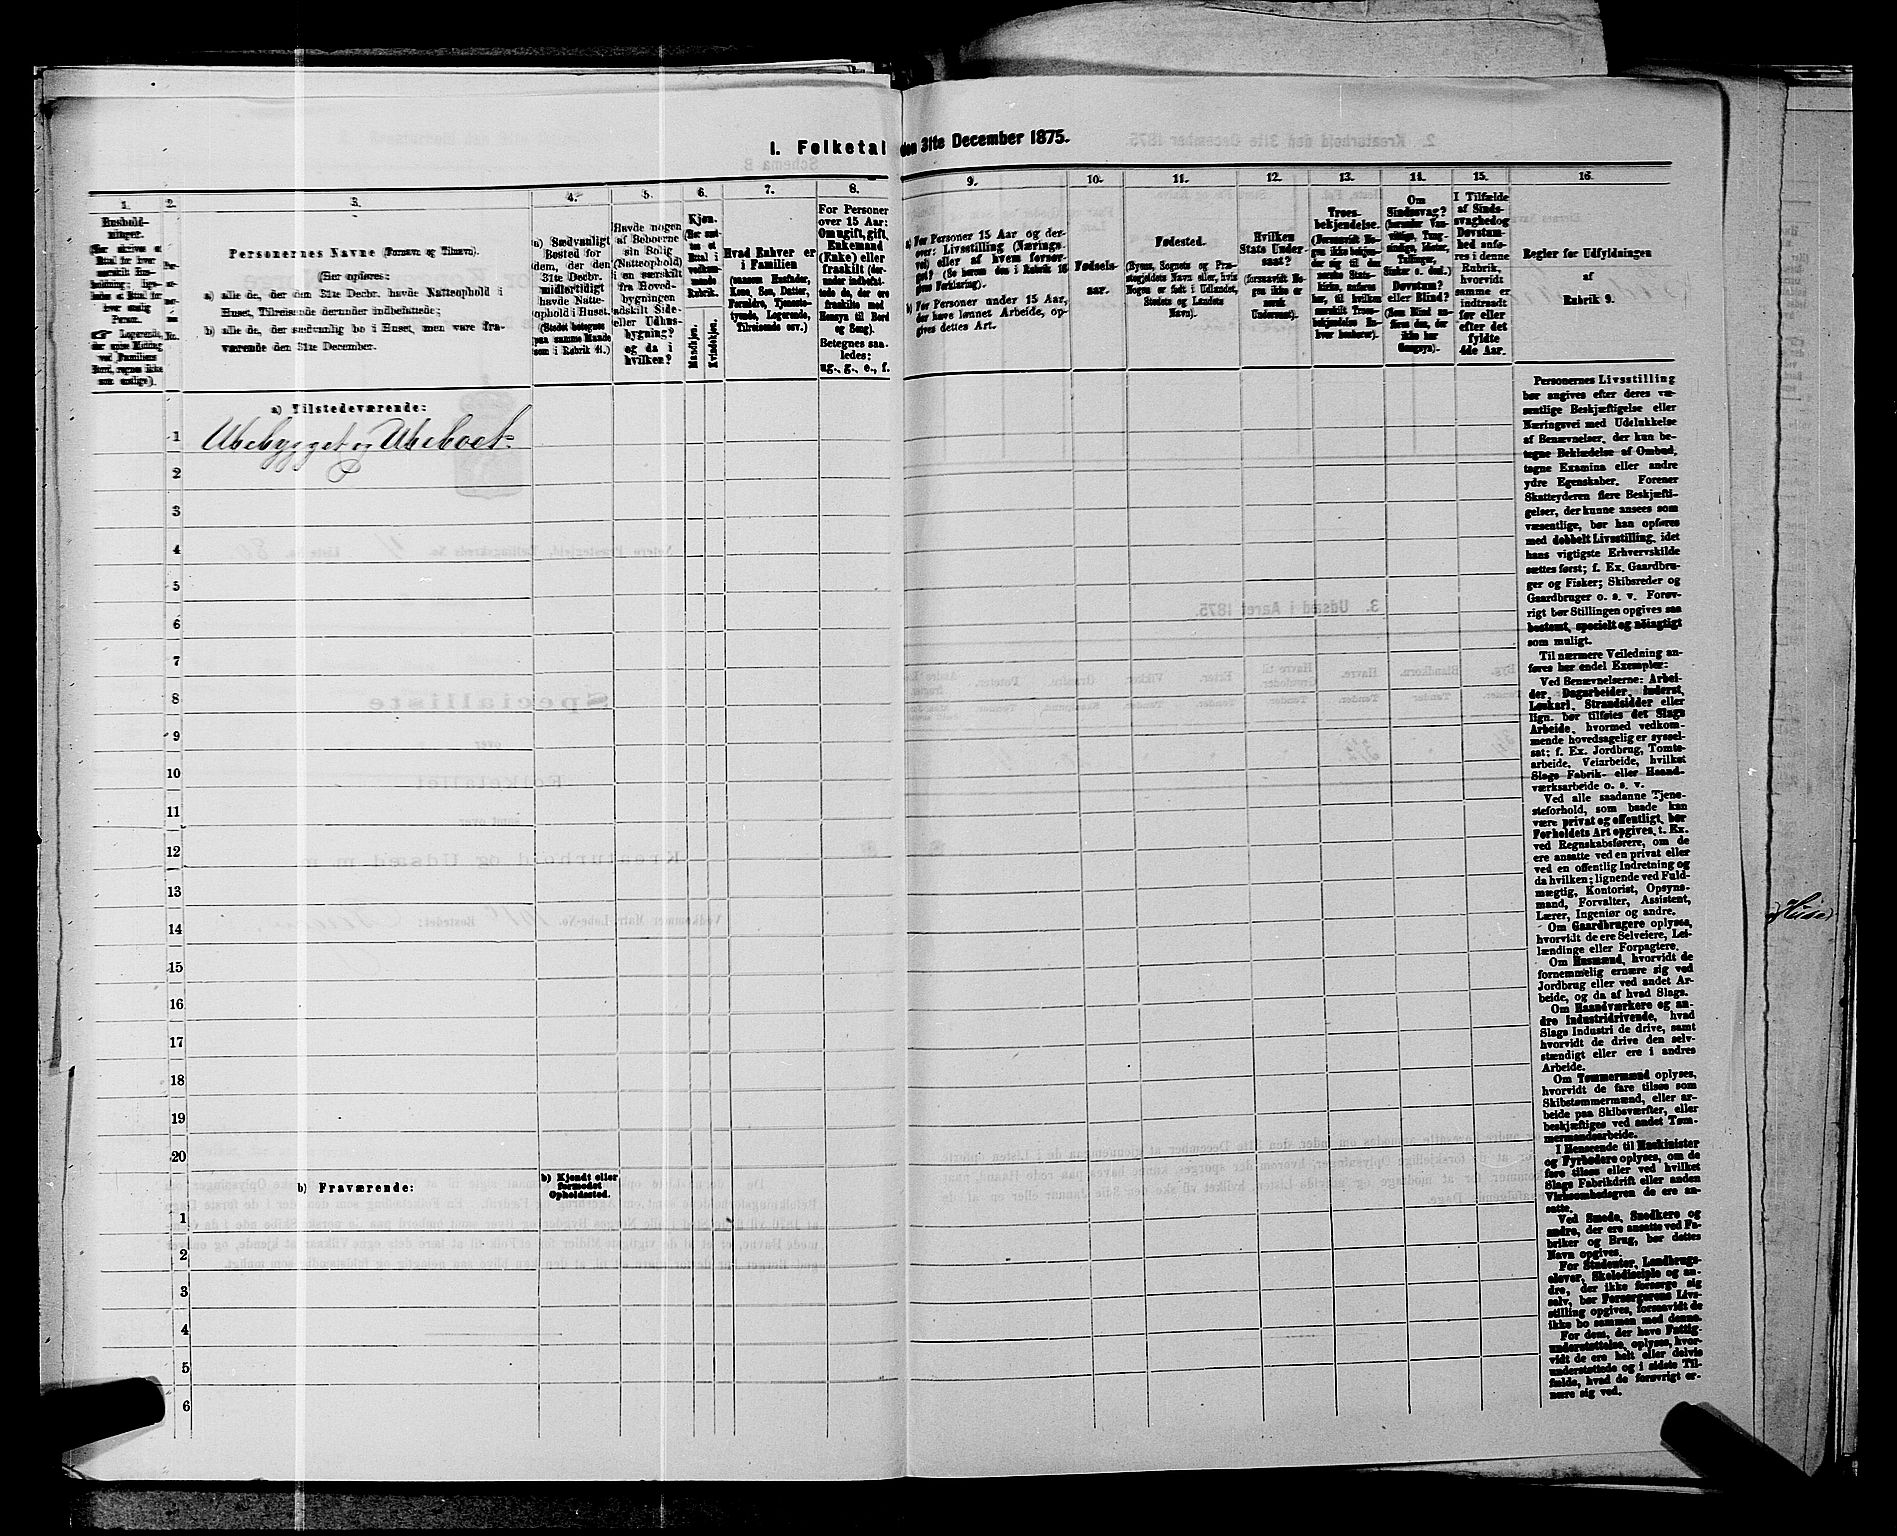 I. Folketal den 31te December 1875.
1.
2.
3.
4.
5.
6.
7.
8.
9.
10.
11.
12.
13.
14.
15.
16.
Personernes Navne (Fornavn og Tilnavn).
(Her opføres:
a) alle de, der den 31te Decbr. havde Natteophold i
Huset, Tilreisende derunder indbefattede;
b) alle de, der sædvanlig bo i Huset, men vare fra-
værende den 31te December.
a) Sædvanligt
Bosted for
dem, der den
31te Decbr.
midlertidigt
havde Natte-
ophold i Huset.
(Stedet betegnes
paa samme Maade
som i Rubrik 11.)
Havde nogen
af Beboerne
sin Bolig
(Natteophold)
i en særskilt
fra Hoved-
bygningen
adskilt Side-
eller Udhus-
bygning?
og da i
hvilken?
Kjøn.
Mandkjøn.
Kvindekjøn.
Hvad Enhver er
i Familien
(saasom Husfader,
Kone, Søn, Datter,
Forældre, Tjeneste-
tyende, Logerende,
Tilreisende osv.)
For Personer
over 15 Aar:
Om ugift, gift,
Enkemand
(Enke) eller
fraskilt (der-
under indbefat-
tede de, der ere
fraskilte med
Hensyn til Bord
og Seng).
Betegnes saa-
ledes:
ug., g., e., f.
a) For Personer 15 Aar og der-
over: Livsstilling (Nærings-
vei) eller af hvem forsør-
get? (Se herom den i Rubrik 16
givne Forklaring).
b) For Personer under 15 Aar,
der have lønnet Arbeide, op-
gives dettes Art.
Fødsels-
aar.
Fødested.
(Byens, Sognets og Præ-
stegjeldets Navn eller, hvis
Nogen er født i Udlandet,
Stedets og Landets
Navn).
Hvilken
Stats Under-
saat?
(forsaavidt No-
gen ikke er
norsk
Undersaat).
Troes-
bekjendelse.
(Forsaavidt No-
gen ikke bekjen-
der sig til den
norske Stats-
kirke, anføres
her, til hvilken
særskilt Troes-
bekjendelse En-
hver henhører).
Om
Sindssvag?
Døvstum?
eller Blind?
I Tilfælde
af Sinds-
svaghed og
Døvstum-
hed anfø-
res i denne
Rubrik,
hvorvidt
samme er
indtraadt
før eller
efter det
fyldte
4de Aar.
Regler for Udfyldningen
af
Rubrik 9.
a) Tilstedeværende:
1 Ubebygget og Ubeboet
2
3
4
5
6
7
8
9
10
11
12
13
14
15
16
17
18
19
20
b) Fraværende:
b) Kjendt eller
formodet
Opholdssted.
1
2
3
4
5
6
Personernes Livsstilling
bør angives efter deres væ-
sentlige Beskjæftigelse eller
Næringsvei med Udelukkelse
af Benævnelser, der kun be-
tegne Beklædelse af Ombud,
tagne Examina eller andre
ydre Egenskaber. Forener
Skatteyderen flere Beskjæfti-
gelser, der kunne ansees som
væsentlige, bør han opføres
med dobbelt Livsstilling, idet
hans vigtigste Erhvervskilde
sættes først; f. Ex. Gaardbru-
ger og Fisker; Skibsreder og
Gaardbruger o. s. v. Forøv-
rigt bør Stillingen opgives saa
bestemt, specielt og nøiagtigt
som muligt.
Til nærmere Veiledning an-
føres her endel Exempler:
Ved Benævnelserne: Arbei-
der, Dagarbeider, Inderst,
Løskarl, Strandsidder eller
lign. bør tilføies det Slags
Arbeide, hvormed vedkom-
mende hovedsagelig er syssel-
sat; f. Ex. Jordbrug, Tomte-
arbeide, Veiarbeide, hvilket
Slags Fabrik- eller Haand-
værksarbeide o. s. v.
Ved alle saadanne Tjene-
steforhold, som baade kan
være privat og offentligt, bør
Forholdets Art opgives, t. Ex.
ved Regnskabsførere, om de
ere ansatte ved en privat eller
ved en offentlig Indretning og
da hvilken; lignende ved Fuld-
mægtig, Kontorist, Opsyns-
mand, Forvalter, Assistent,
Lærer, Ingeniør og andre.
Om Gaardbrugere oplyses,
hvorvidt de ere Selveiere, Lei-
lændinge eller Forpagtere.
Om Husmænd, hvorvidt de
fornemmelig ernære sig ved
Jordbrug eller ved andet Ar-
beide, og da af hvad Slags.
Om Haandværkere og an-
dre Industridrivende, hvad
Slags Industri de drive, samt
hvorvidt de drive den selv-
stændigt eller ere i andres
Arbeide.
Om Tømmermænd oplyses,
hvorvidt de fare tilsøs som
Skibstømmermænd, eller ar-
beide paa Skibsværfter, eller
beskjæftiges ved andet Tøm-
mermandsarbeide.
I Henseende til Maskinister
og Fyrbødere oplyses, om de
fare tilsøs eller ved hvilket
Slags Fabrikdrift eller anden
Virksomhedsgren de ere an-
satte.
Ved Smede, Snedkere og
andre, der ere ansatte ved Fa-
briker og Brug, bør dettes
Navn opgives.
For Studenter, Landbrugs-
elever, Skoledisciple og an-
dre, der ikke forsørge sig
selv, bør Forsørgerens Livs-
stilling opgives, forsaavidt de
ikke bo sammen med denne.
For dem, der have Fattig-
understøttelse, oplyses, hvor-
vidt de ere helt eller delvis
understøttede og i sidste Til-
fælde, hvad de forøvrigt er-
nære sig ved.